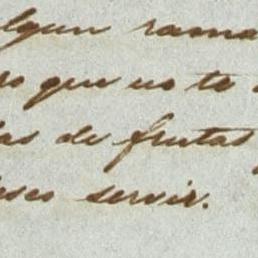 lgun rama
o que no te
las de frutas
eseo servir.